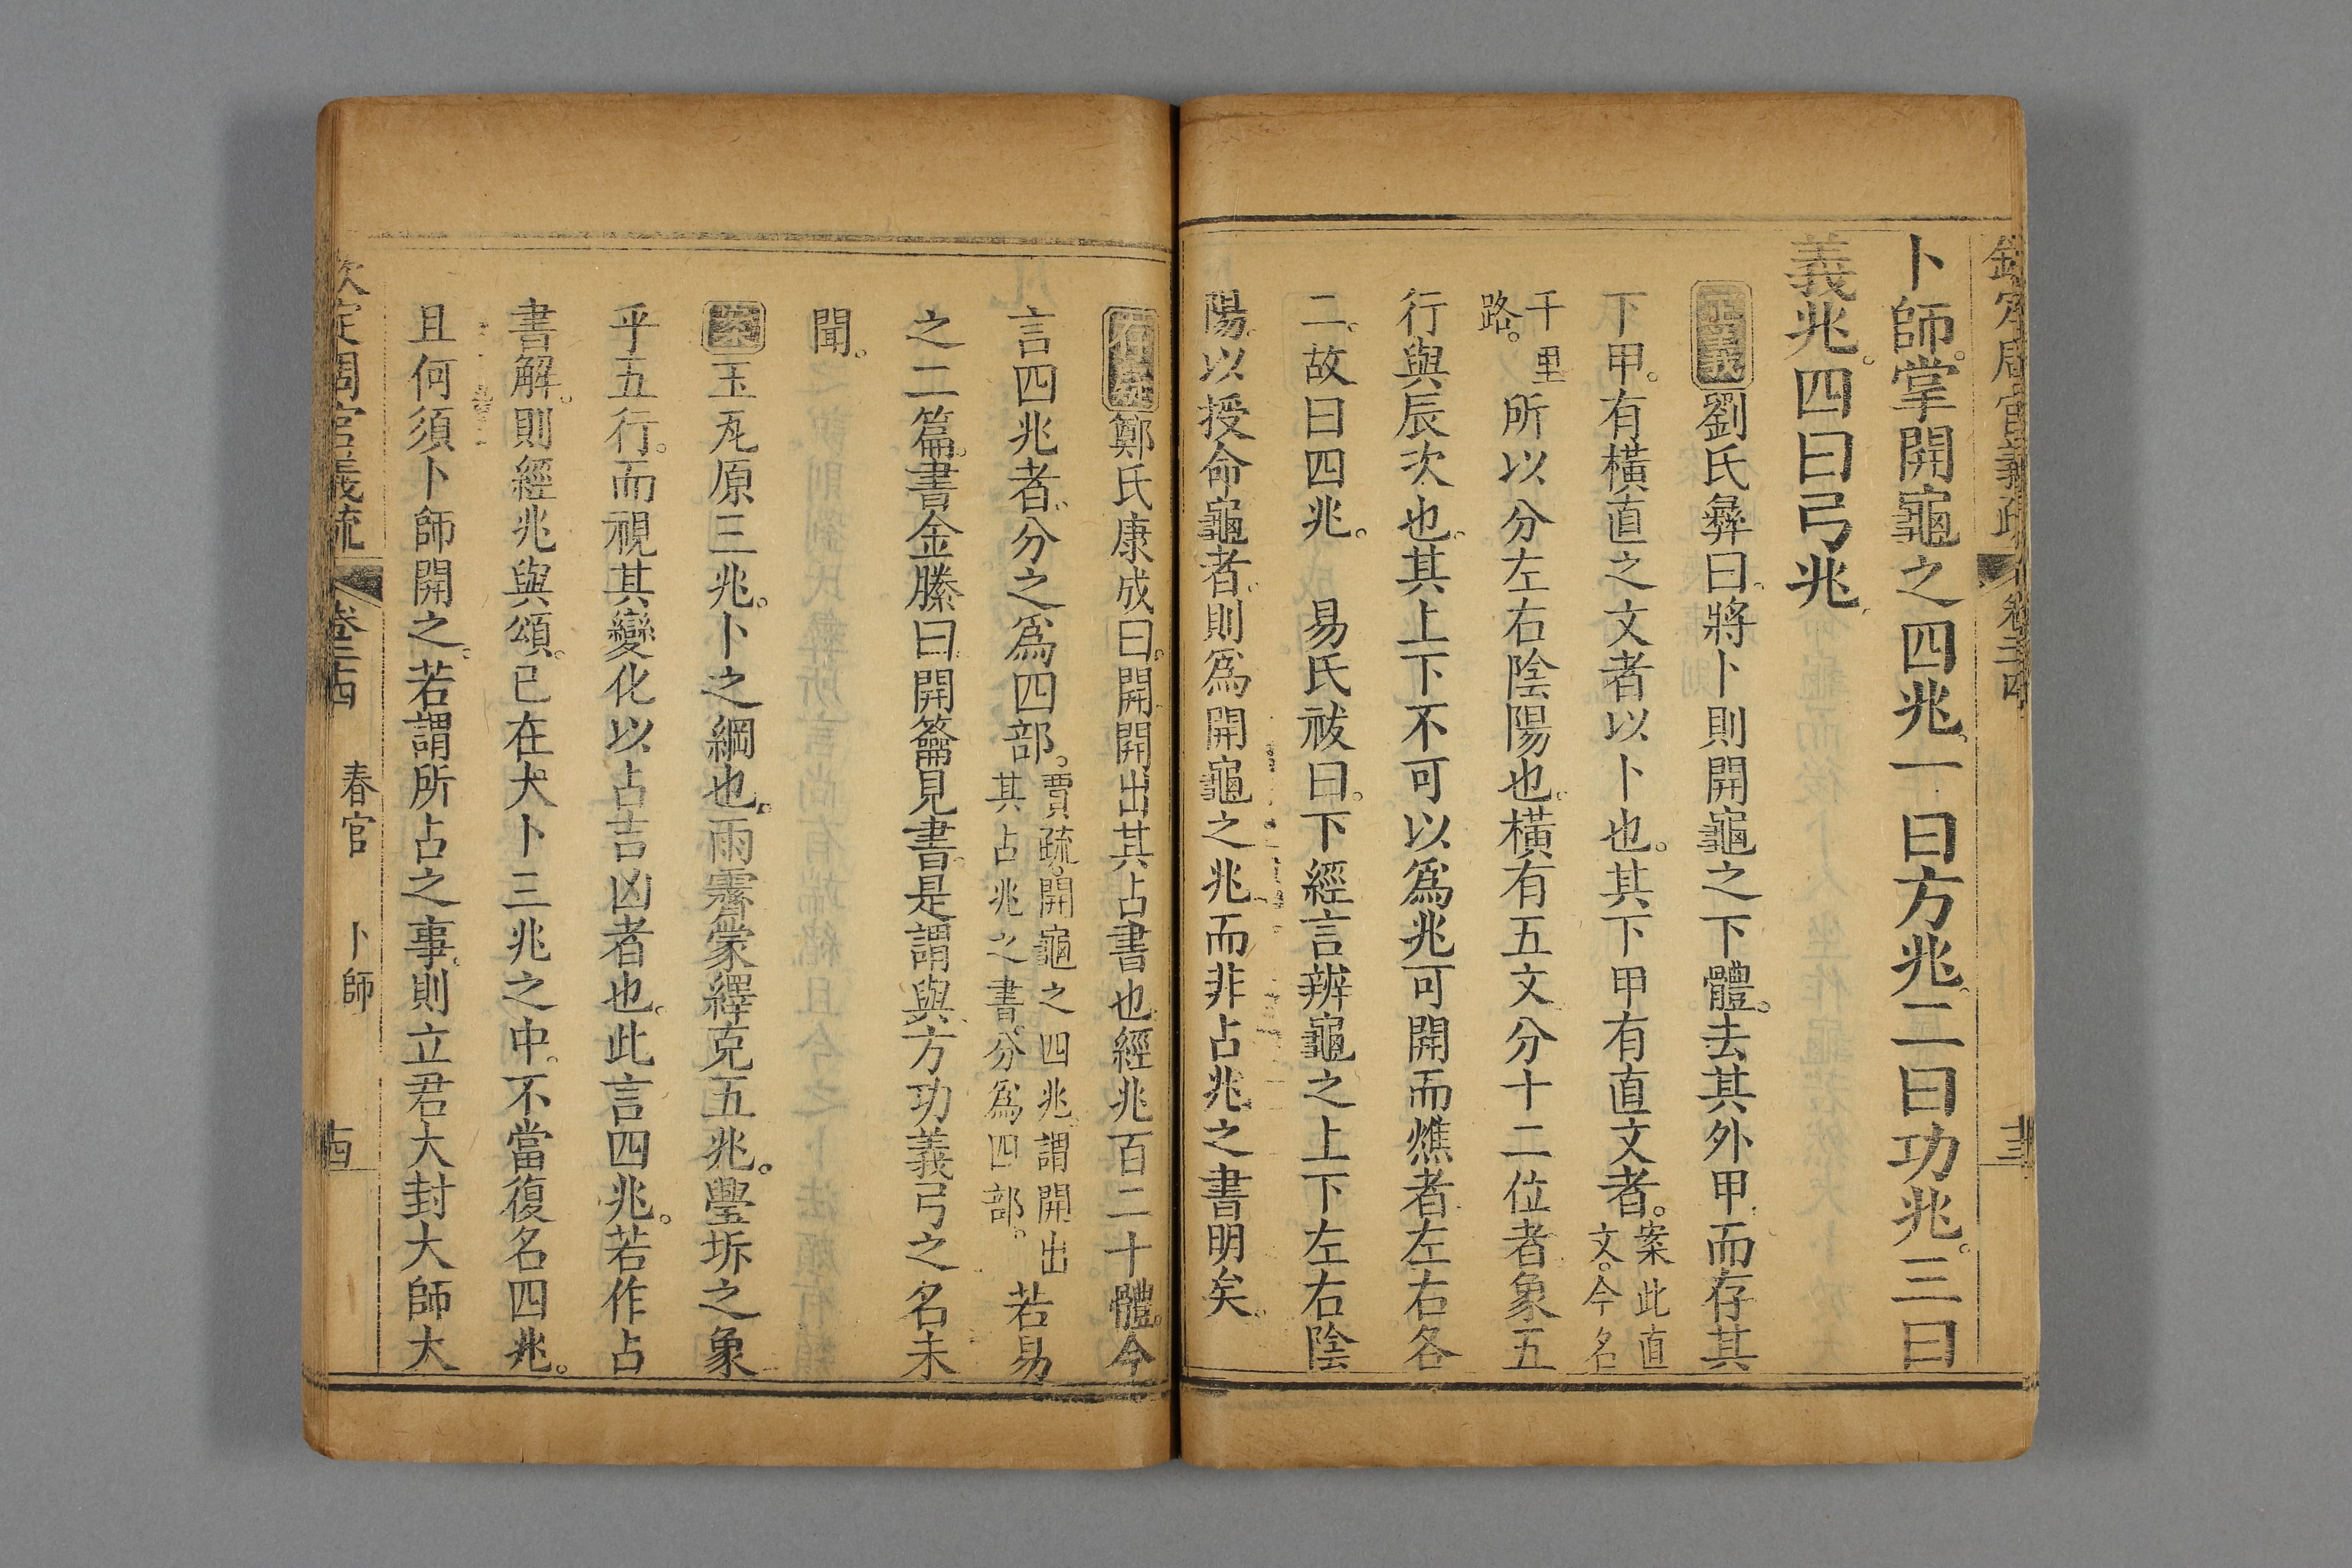 欽定周官義疏 卷三十四
卜師。掌開龜之四兆。一曰方兆。二曰功兆。三曰
義兆。四曰弓兆。
正義劉氏彝曰。將卜則開龜之下體。去其外甲。而存其
下甲。有橫直之文者以卜也。其下甲有直文者。案此直
文。今名
千里
路。所以分左右陰陽也。橫有五文。分十二位者。象五
行與辰次也。其上下不可以爲兆。可開而燋者。左右各
二。故曰四兆。 易氏祓曰。下經言辨龜之上下左右陰
陽。以授命龜者。則爲開龜之兆。而非占兆之書明矣。
存疑鄭氏康成曰。開開出其占書也。經兆百二十體。今
言四兆者。分之爲四部。賈疏。開龜之四兆。謂開出
其占兆之書。分爲四部。若易
之二篇。書金縢曰。開籥見書。是謂與。方功義弓之名未
聞。
案玉瓦原三兆。卜之綱也。雨霽蒙繹克五兆。璺坼之象
乎五行。而視其變化以占吉凶者也。此言四兆。若作占
書解。則經兆與頌。已在大卜三兆之中。不當復名四兆。
且何須卜師開之。若謂所占之事。則立君大封大師大
欽定周官義疏 卷三十四 春官 卜師